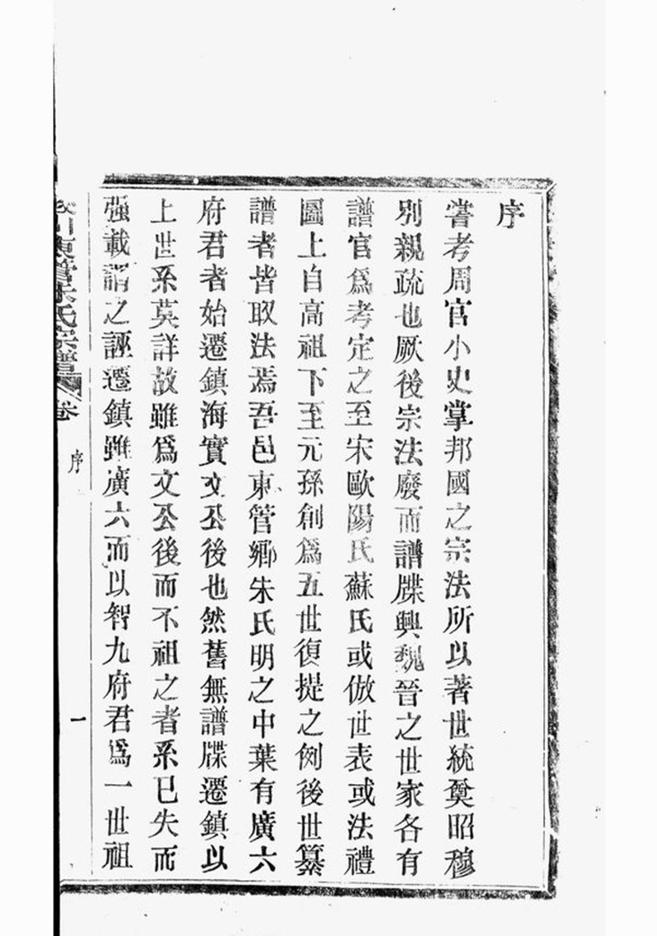 序
嘗考周官小史掌邦國之宗法所以著世統奠昭穆
別親疏也厥後宗法廢而譜牒興魏晉之世家各有
譜官爲考定之至宋歐陽氏蘇氏或倣世表或法禮
圖上自高祖下至元孫創爲五世復提之例後世纂
譜者皆取法焉吾邑東管鄉朱氏明之中葉有廣六
府君者始遷鎮海實文公後也然舊無譜牒遷鎮以
上世系莫詳故雖爲文公後而不祖之者系已失而
强載謂之誣遷鎮雖廣六而以智九府君爲一世祖
川東管朱氏宗譜 卷 序 一